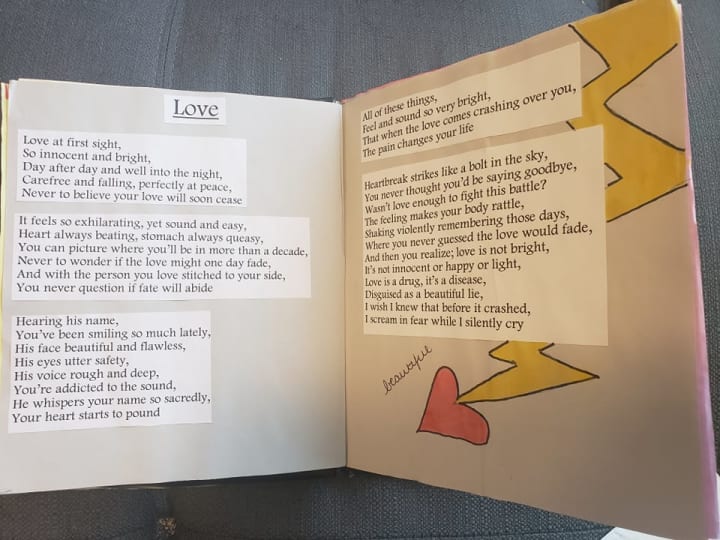 Love
Love at first sight,
So innocent and bright,
Day after day and well into the night,
Carefree and falling, perfectly at peace,
Never to believe your love will soon cease
It feels so exhilarating, yet sound and easy,
Heart always beating, stomach always queasy,
You can picture where you'll be in more than a decade,
Never to wonder if the love might one day fade,
And with the person you love stitched to your side,
You never question if fate will abide
Hearing his name,
You've been smiling so much lately,
His face beautiful and flawless,
His eyes utter safety,
His voice rough and deep,
You're addicted to the sound,
He whispers your name so sacredly,
Your heart starts to pound
All of these things,
Feel and sound so very bright,
That when the love comes crashing over you,
The pain changes your life
Heartbreak strikes like a bolt in the sky,
You never thought you'd be saying goodbye,
Wasn't love enough to fight this battle?
The feeling makes your body rattle,
Shaking violently remembering those days,
Where you never guessed the love would fade,
And then you realize; love is not bright,
It's not innocent or happy or light,
Love is a drug, it's a disease,
Disguised as a beautiful lie,
I wish I knew that before it crashed,
I scream in fear while I silently cry
beautiful